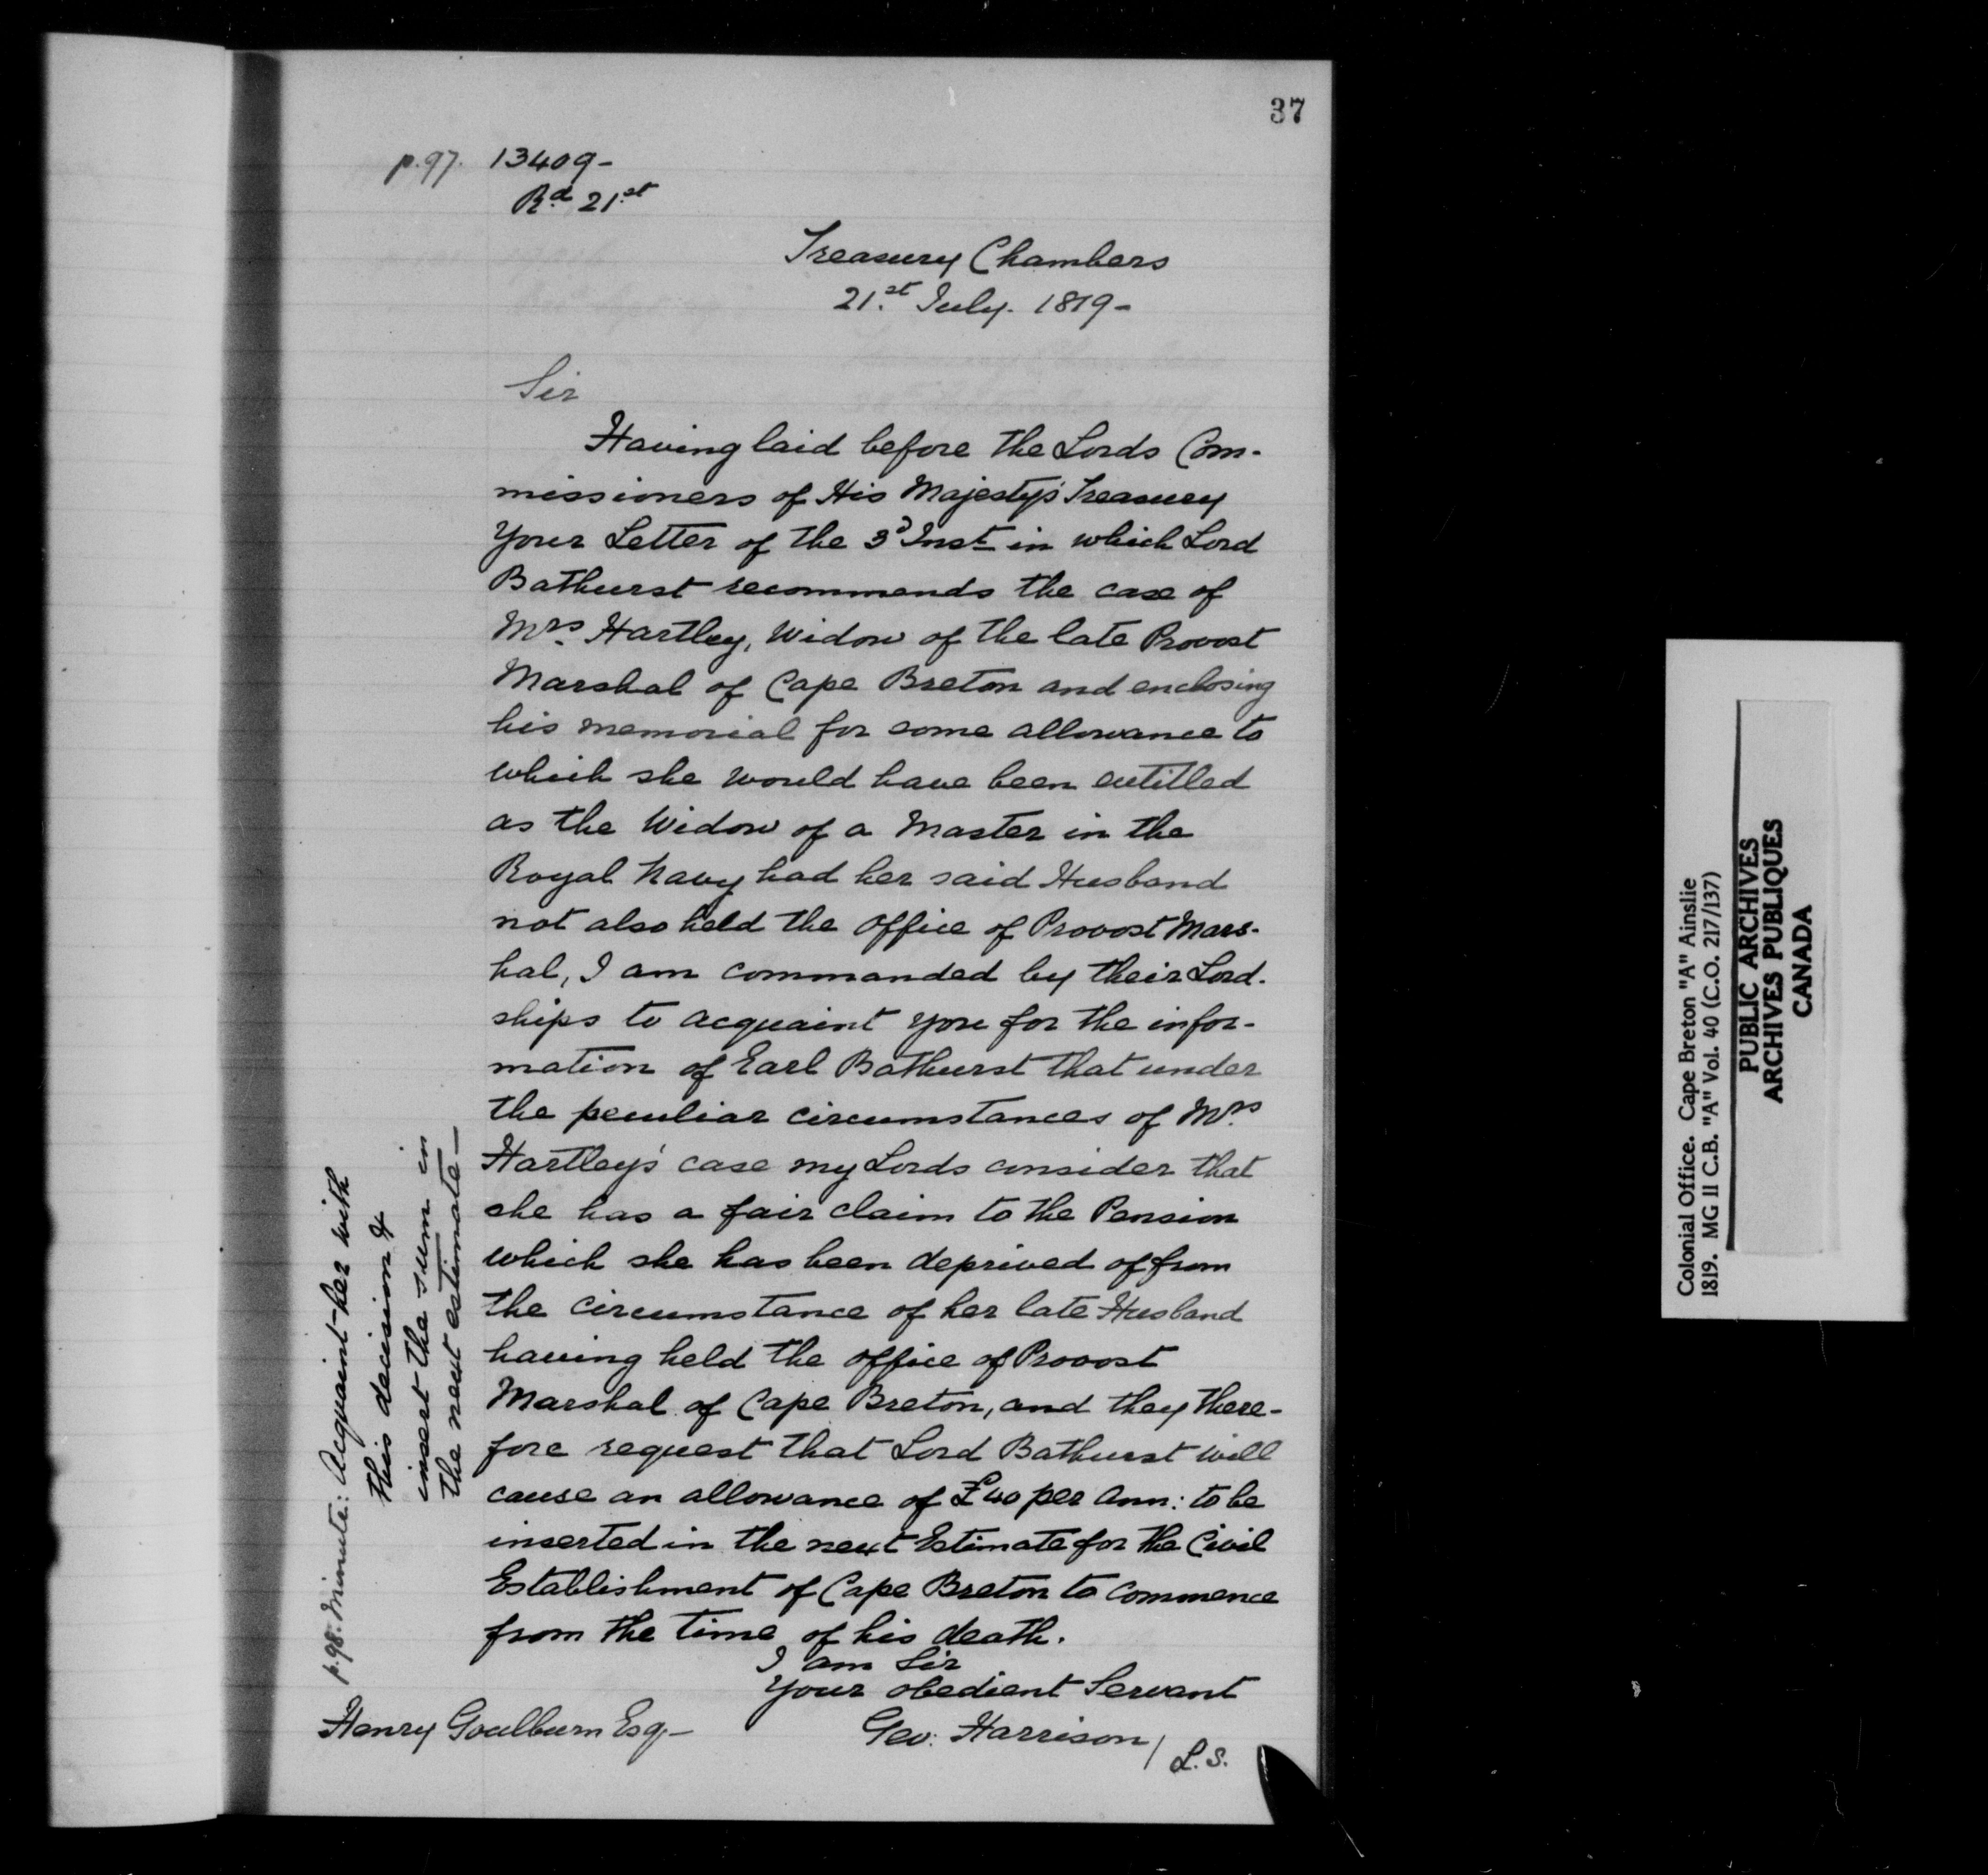 37
p.97. 13409-
Rd. 21.st
Treasury Chambers
21.st July. 1819-
Sir
Having laid before the Lords Com-
missioners of His Majesty's Treasury
your Letter of the 3d Inst in which Lord
Bathurst recommends the case of
Mrs. Hartley, Widow of the late Provost
Marshal of Cape Breton and enclosing
his memorial for some allowance to
which she would have been entitled
as the Widow of a Master in the
Royal Navy had her said Husband
not also held the office of Provost Mars-
hal, I am commanded by their Lord-
ships to acquaint you for the infor-
mation of Earl Bathurst that under
the peculiar circumstances of Mrs.
Hartley's case my Lords consider that
she has a fair claim to the Pension
which she has been deprived of from
the circumstance of her late Husband
having held the office of Provost
Marshal of Cape Breton, and they there-
fore request that Lord Bathurst will
cause an allowance of £40 per Ann: to be
inserted in the next Estimate for the Civil
Establishment of Cape Breton to commence
from the time of his death.
I am Sir
your obedient Servant
Geo: Harrison/
L.S.
Henry Goulburn Esq-
p.98. Minute: Acquaint her with
this decision &
insert the sum in
the next estimate-
Colonial Office. Cape Breton "A" Ainslie
1819. MG 11 C.B. "A" Vol. 40 (C.O. 217/137)
PUBLIC ARCHIVES
ARCHIVES PUBLIQUES
CANADA